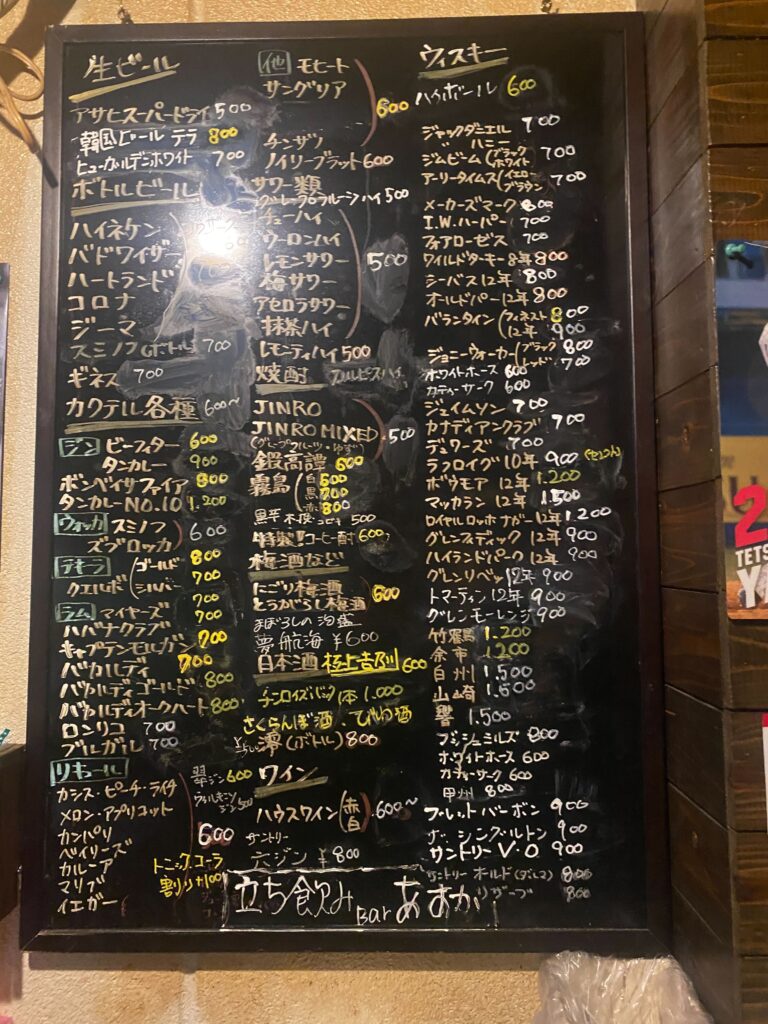 生ビール
アサヒスーパードライ 500
韓国ビール テラ 800
ヒューガルデンホワイト 700
ボトルビール
ハイネケン
バドワイザー
ハートランド
コロナ
ジーマ
スミノフ 700
ギネス 700
カクテル各種 600〜
ジン ビーフィター 600
タンカレー 900
ボンベイサファイア 800
タンカレーNO.10 1.200
ウォッカ スミノフ
ズブロッカ 600
テキーラ ゴールド 800
クエルボ シルバー 700
700
ラム マイヤーズ 700
ハバナクラブ
キャプテンモルガン 700
バカルディ 700
バカルディゴールド 800
バカルディオークハート 800
ロンリコ 700
ブルガル 700
リキュール
カシス・ピーチ・ライチ
メロン・アプリコット
カンパリ
ベイリーズ 600
カルーア
マリブ
イエガー
翠ジン 600
トニック、コーラ
割り +100
他 モヒート
サングリア 600
チンザノ
ノイリープラット 600
サワー類
グレープフルーツハイ 500
チューハイ
ウーロンハイ
レモンサワー 500
梅サワー
アセロラサワー
抹茶ハイ
レモンティハイ 500
焼酎 カルピスハイ
JINRO
JINRO MIXED 500
(グレープフルーツ・ゆず)
鍛高譚 600
霧島 白 600
黒 700
赤 800
500
特製!コーヒー酎 600
梅酒など
にごり梅酒 600
とうがらし梅酒
まぼろしの泡盛
夢航海 ¥600
日本酒 極上吉乃川 600
1本 1.000
さくらんぼ酒・びわ酒
澪(ボトル) 800
ワイン
ハウスワイン(赤 白) 600〜
サントリー
六ジン ¥800
立ち飲み Bar あすか
ウィスキー
ハイボール 600
ジャックダニエル 700
〃 ハニー
ジムビーム(ブラック ホワイト 700
アーリータイムス(イエロ ブラウン 700
メーカーズマーク 800
I.W.ハーパー 700
フォアローゼス 700
ワイルドターキー8年 800
シーバス12年 800
オールドパー12年 800
バランタイン(フィネスト 800
12年 900
ジョニーウォーカー(ブラック 800
レッド 700
ホワイトホース 600
カティーサーク 600
ジェイムソン 700
カナディアンクラブ 700
デュワーズ 700
ラフロイグ10年 900
ボウモア12年 1.200
マッカラン12年 1.500
ロイヤルロッホナガー12年 1.200
グレンフィディック12年 900
ハイランドパーク12年 900
グレンリベット12年 900
トマーティン12年 900
グレンモーレンジ 900
竹鶴 1.200
余市 1.200
白州 1.500
山崎 1.500
響 1.500
ブッシュミルズ 800
ホワイトホース 600
カティーサーク 600
甲州 800
ブレットバーボン 900
ザ・シングルトン 900
サントリーV・O 900
サントリーオールド(ダルマ) 800
リザーブ 800